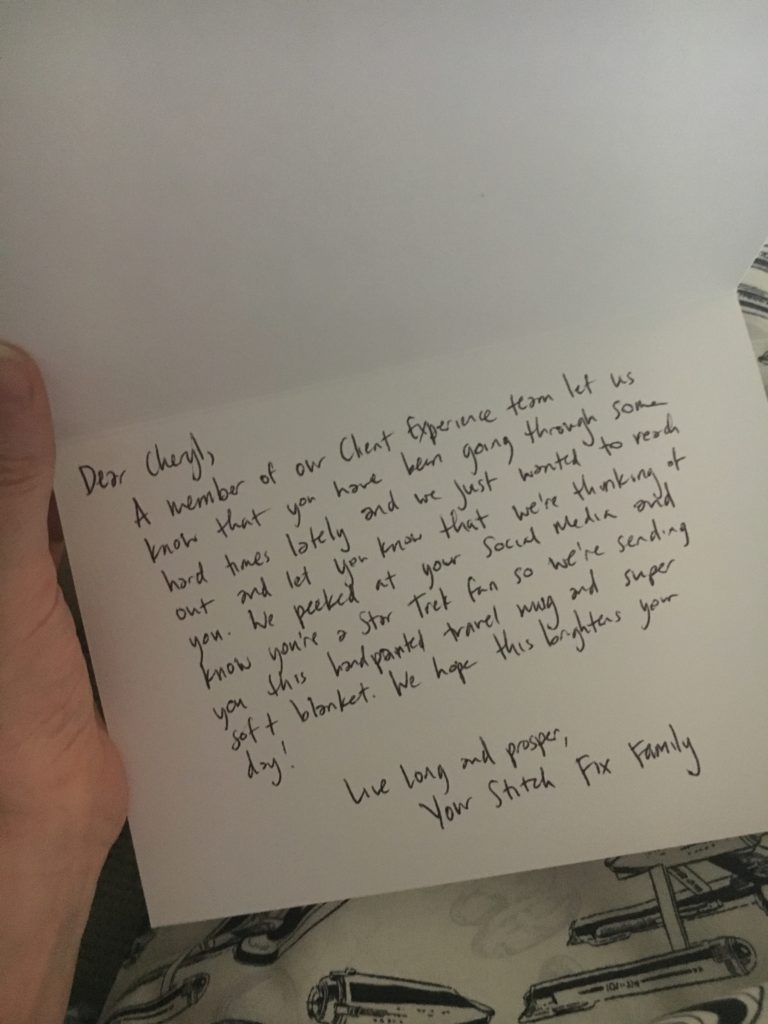 Dear Cheryl,
A member of our Client Experience team let us
know that you have been going through some
hard times lately and we just wanted to reach
out and let you know that we're thinking of
you. We peeked at your Social Media and
know you're a Star Trek fan so we're sending
you this handpainted travel mug and super
soft blanket. We hope this brightens your
day!
Live long and prosper,
Your Stitch Fix Family